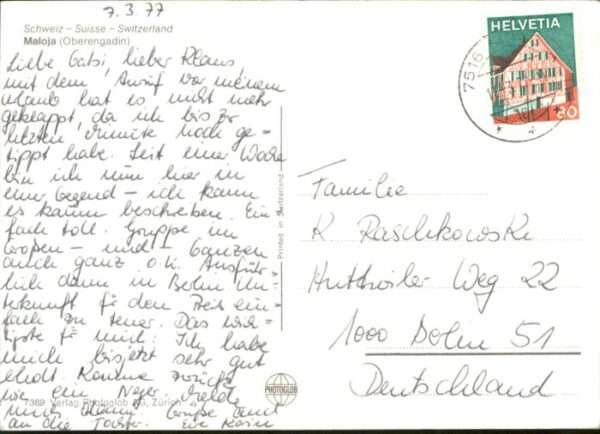 7.3.77
Schweiz – Suisse – Switzerland
Maloja (Oberengadin)
Liebe Gabi, lieber Klaus,
mit dem Anruf vor meinem
Urlaub hat es nicht mehr
geklappt, da ich bis zur
letzten Minute noch ge-
tippt habe. Seit einer Woche
bin ich nun hier in
einer Gegend – ich kann
es kaum beschreiben. Ein
fach toll. Gruppe im
Großen – und – Ganzen
auch ganz o.k. Ausführ
lich dann in Berlin. Un
terkunft für den Preis ein
fach zu teuer. Das wich-
tigste für mich: Ich habe
mich bisjetzt sehr gut
erholt. Komme zurück
wie ein Neger. Melde
mich dann. Grüße
an die Eure Karin
HELVETIA
80
7516
Familie
K. Raschkowski
Huttwiler Weg 22
1000 Berlin 51
Deutschland
Printed in Switzerland
PHOTOGLOB
7389 Verlag Photoglob AG, Zürich